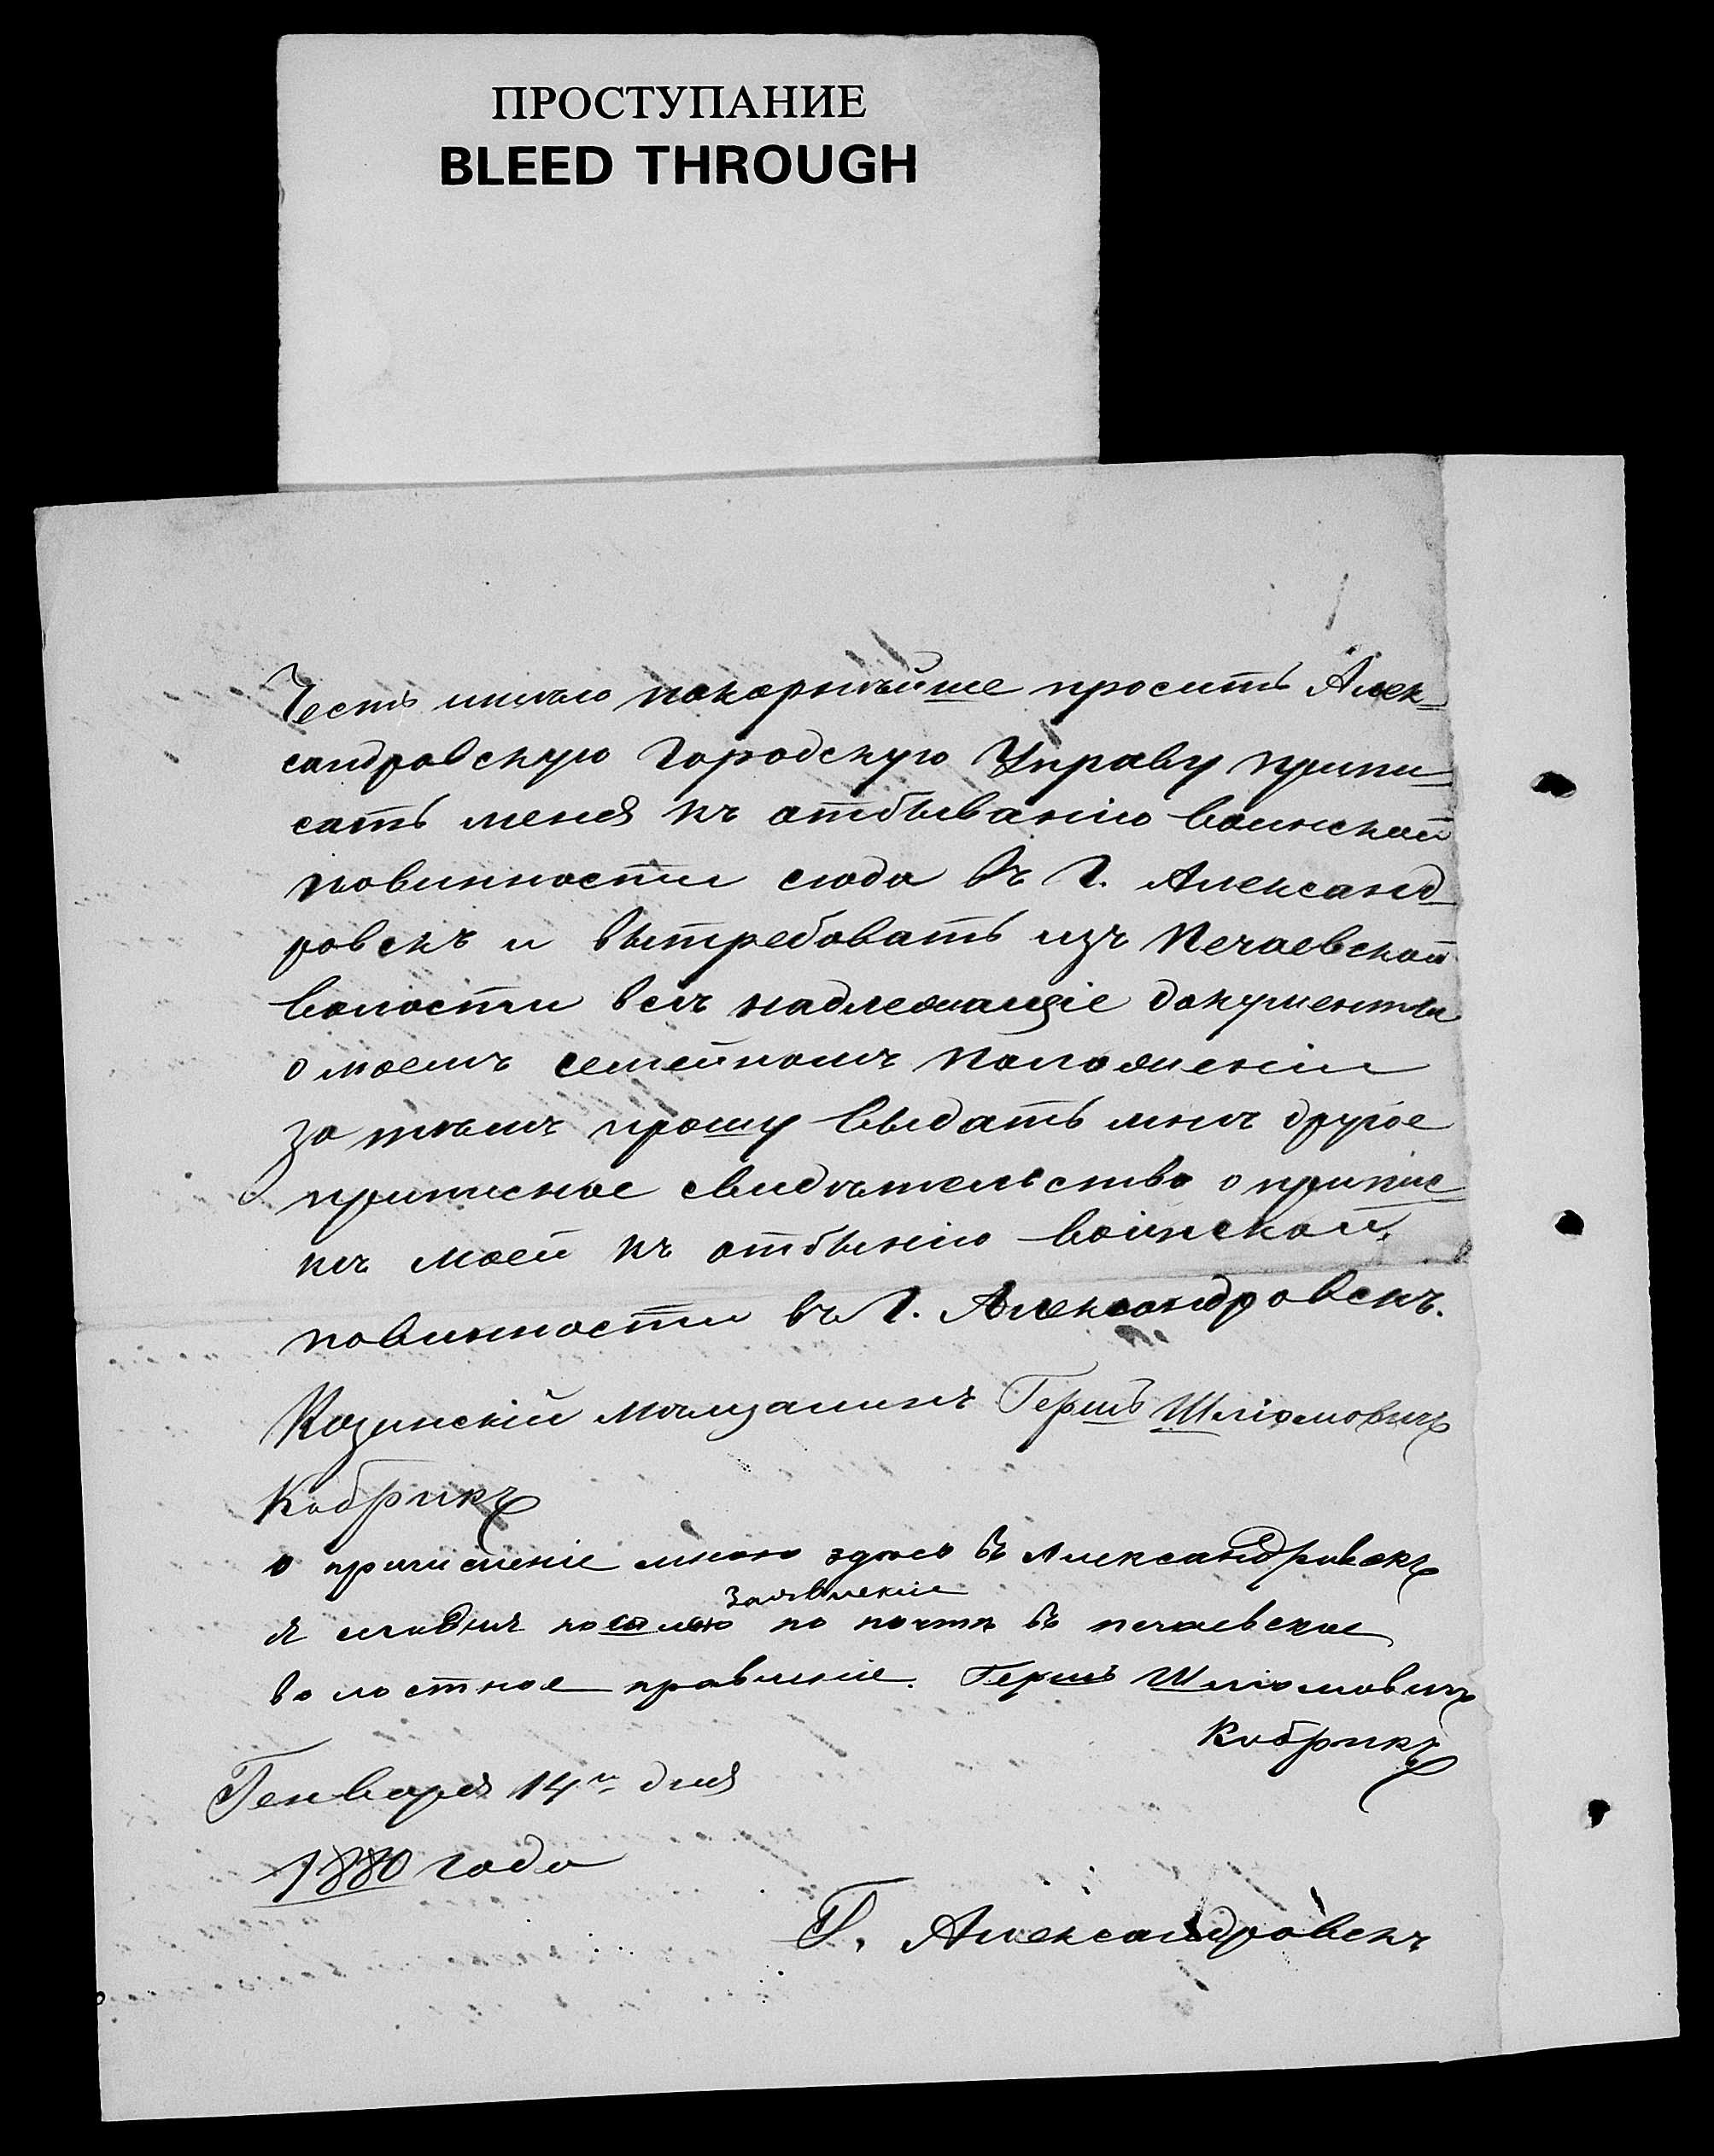 ПРОСТУПАНИЕ
BLEED THROUGH
Честь имѣю покорнѣйше просить Алек-
сандровскую Городскую Управу припи-
сать меня къ отбыванію воинской
повинности сюда въ Г. Александ
ровскъ и вытребовать изъ Почаевской
волости всѣ надлежащіе документы
о моемъ семейномъ положеніи
За тѣмъ прошу выдать мнѣ другое
приписное свидѣтельство о припис
кѣ моей къ отбынію воинской
повинности въ Г. Александровскъ.
Козинскій мѣщанинъ Гершъ Шліомовичъ
Кобрикъ
о причисленіе мною здѣсь въ Александровскъ
заявленіе
я по почтѣ въ почаевское
волостное правленіе. Гершъ Шліомовичъ
Кобрикъ
Генваря 14го дня
1880 года
Г. Александровскъ